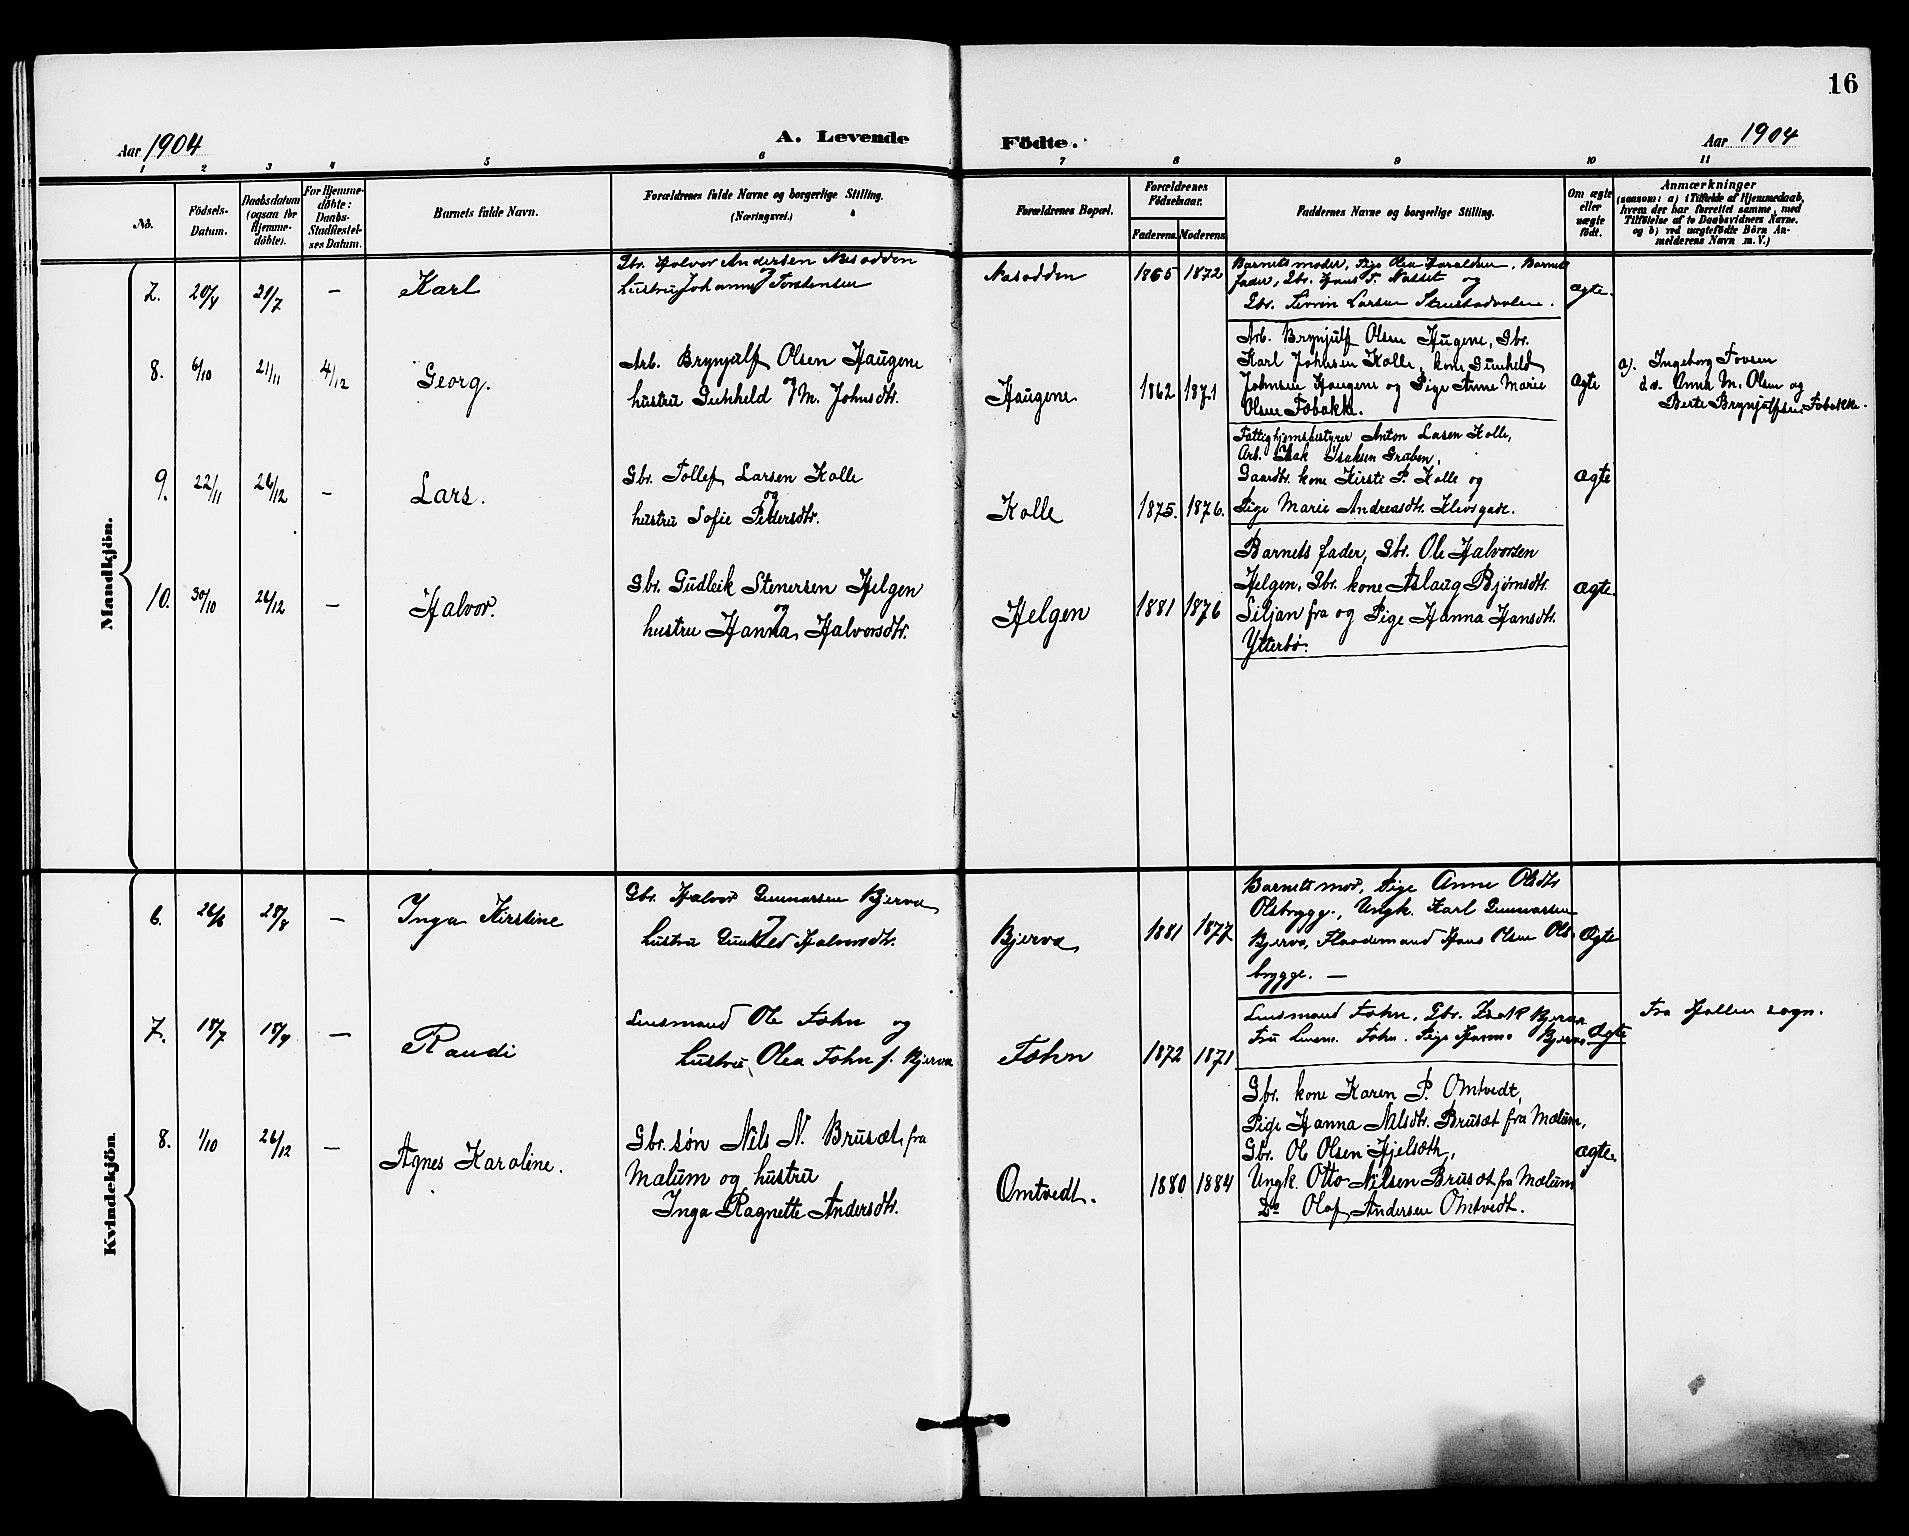 16
Aar 1904
A. Levende
Födte.
Aar 1904
1 2 3 4 5 6 7 8 9 10 11
No.
Födsels-Datum.
Daabsdatum (ogsaa for Hjemme-döbte).
For Hjemme-döbte: Daabs-Stadfæstel-ses Datum.
Barnets fulde Navn.
Forældrenes fulde Navne og borgerlige Stilling.
(Næringsvei.)
Forældrenes Bopæl.
Forældrenes Födselsaar.
Faderens. Moderens.
Faddernes Navne og borgerlige Stilling.
Om ægte eller uægte födt.
Anmærkninger
(saasom: a) i Tilfælde af Hjemmedaab,
hvem der har forrettet samme, med
Tilföielse af to Daabsvidners Navne.
og b) ved uægtefödte Börn An-
melderens Navn m. V.)
Mandkjön.
7. 21/7 – Karl
Gbr. Halvor Andersen Næsodden
og
hustru Johanne Torstensen
Næsodden
1865 1872
Barnets moder, Pige Olea Haraldsen, Barnets
fader, Gbr. Hans T. Næsset og
Gbr. Larsen
ægte.
8. 6/10 21/11 4/12 Georg.
Arb. Brynjulf Olsen Haugene
og
hustru Gunhild M. Johnsdtr.
Haugene
1862 1871
Arb. Brynjulf Olsen Haugene, Gbr.
Karl Johnsen Kolle, kone Gunhild
Johnsen Haugene og Pige Anne Marie
Olsen Fobakk.
ægte
a). Ingeborg Fovsen
d.o. Anna M. Olsen og
Berte Brynjulfsen Fobakke.
9. 22/11 26/12 – Lars.
Gbr. Tollef Larsen Kolle
og
hustru Sofie Pettersdtr.
Kolle
1875. 1876.
Fattighjemsbestyrer Anton Lasen Kolle,
Arb. Isak Isaksen Graben,
Gaardbr. kone Kirsti P. Kolle og
Pige Marie Andreasdtr.
ægte
10. 30/10 26/12 – Halvor.
Gbr. Gudleik Stenersen Helgen
og
hustru Hanna Halvorsdtr.
Helgen
1881 1876
Barnets fader, Gbr. Ole Halvorsen
Helgen, Gbr. kone Aslaug Bjørnsdtr.
Siljan fra og Pige Hanna Hansdtr.
Ytterbø.
ægte.
Kvindekjön.
6. 26/6 28/8 – Inga Kirstine
Gbr. Halvor Gunnarsen Bjerva
og
hustru Gunhild Halvorsdtr.
Bjerva
1881 1877
Barnets mor, Pige Anne Olsdtr
Olsbrygg., Ungk. Karl Gunnarsen
Bjerva, Flaademand Hans Olsen Ols-
brygge. –
Ægte
7. 18/7 18/9 – Randi
Lensmand Ole Fæhn og
hustru, Olea Fæhn f. Bjerva
Fæhn
1872 1871
Lensmand Fæhn, Gbr. Isak Bjerva
Fru Lensm. Fæhn. Pige Hanna Bjerva
Ægte
Fra Hollen sogn.
8. 1/10 26/12 – Agnes Karoline.
Gbr. søn Nils N. Brusæt, fra
Mælum og hustru
Inga Ragnette Andersdtr.
Omtvedt.
1880 1884
Gbr. kone Karen P. Omtvedt,
Pige Hanna Nilsdtr. Brusæt fra Mælum,
Gbr. Ole Olsen Hjelsæth,
Ungk. Otto Nilsen Brusæt fra Mælum
Do Olaf Andersen Omtvedt.
ægte.